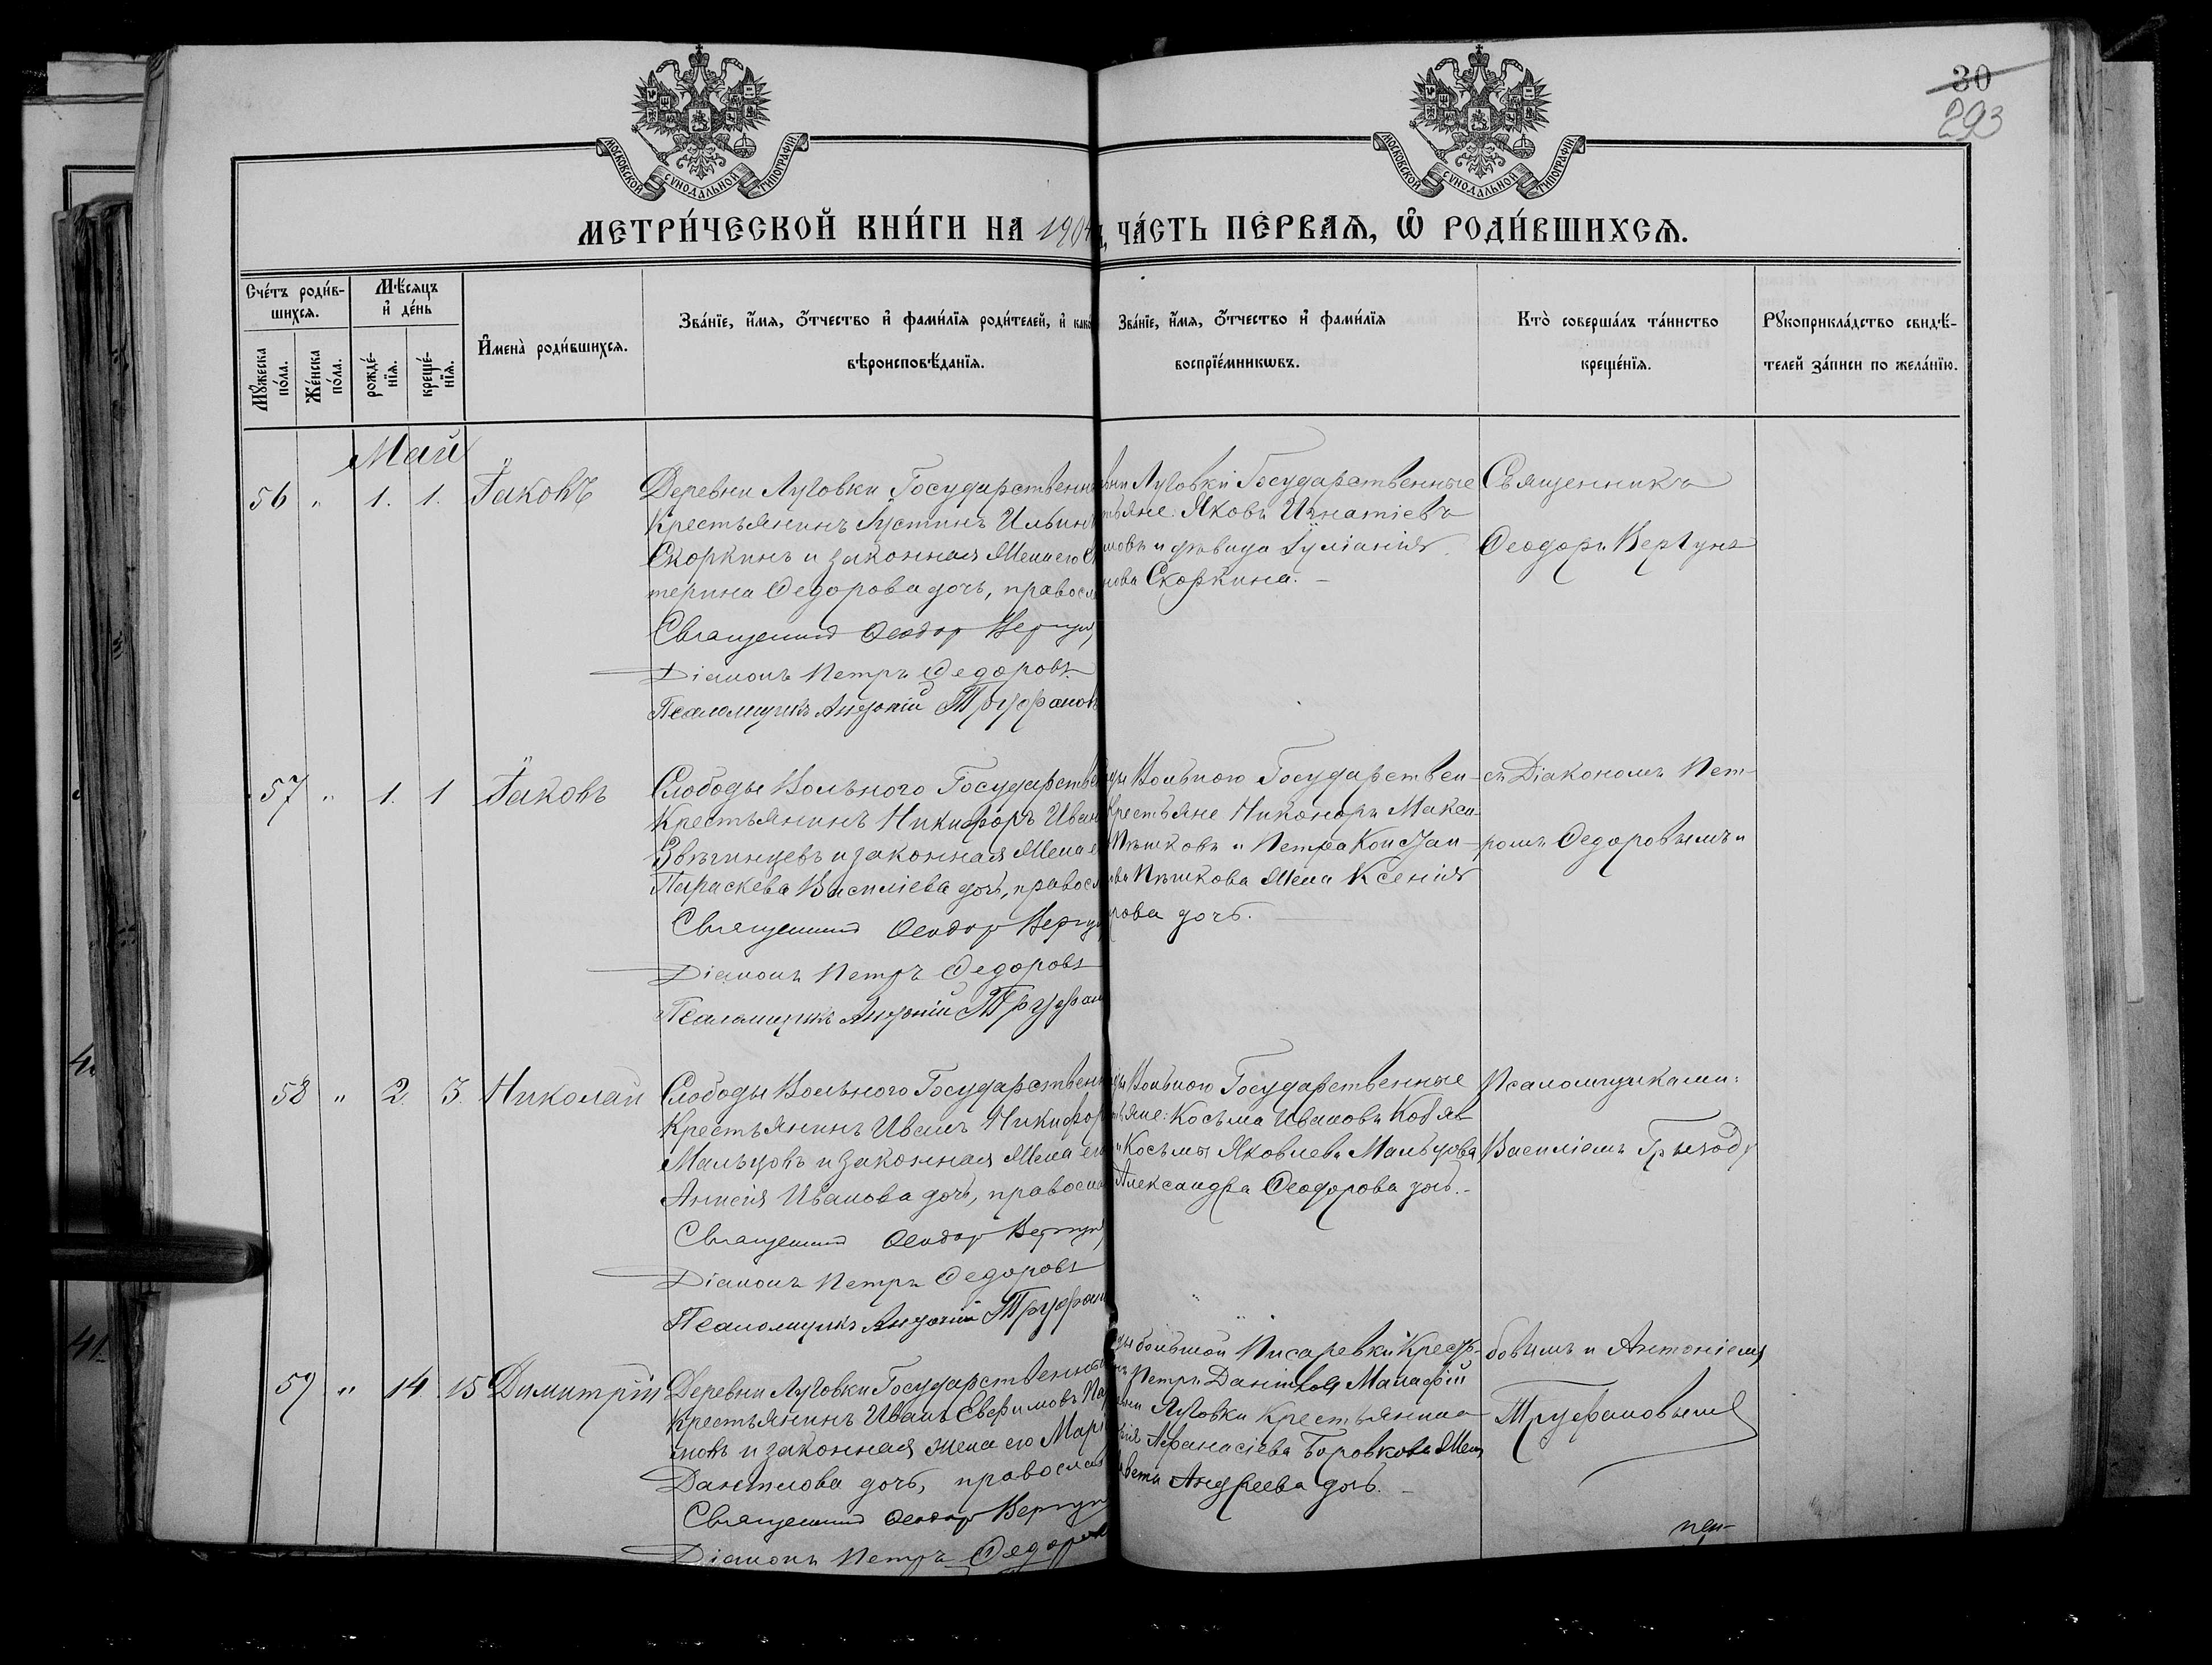 30
293
МОСКОВСКОЙ СѴНОДАЛЬНОЙ ТИПОГРАФІИ
МОСКОВСКОЙ СѴНОДАЛЬНОЙ ТИПОГРАФІИ
МЕТРИ́ЧЕСКОЙ КНИ́ГИ НА 1904 ЧА́СТЬ ПЕ́РВАѦ, Ѡ҆ РОДИ́ВШИХСѦ.
Сче́тъ роди́в-
шихсѧ.
Мꙋ́жеска по́ла.
Же́нска по́ла.
Мѣ́сѧцъ и҆ де́нь
рожде́-нїѧ.
креще́-нїѧ.
И҆мена̀ роди́вшихсѧ.
Зва́нїе, и҆́мѧ, ѻ҆́тчество и҆ фами́лїѧ роди́телей, и҆ како
вѣроисповѣ́данїѧ.
Зва́нїе, и҆́мѧ, ѻ҆́тчество и҆ фами́лїѧ
воспрїе́мникѡвъ.
Кто̀ соверша́лъ та́инство
креще́нїѧ.
Рꙋкоприкла́дство свидѣ́-
телей за́писи по жела́нїю.
Май
56 " 1. 1. Іаковъ
Деревни Луговки Государственн
Крестьянинъ Іустинъ Ильинъ
Скоркинъ и законная жена его Ек
терина Ѳедорова дочь, правосл
Священник Ѳеодор Вергун
Діаконъ Петръ Ѳедоровъ
Псаломщикъ Антоній Труфанов
вни Луговки Государственные
тьяне: Яковъ Игнатіевъ
новъ и дѣвица Іуліанія
нова Скоркина. –
Священникъ
Ѳеодоръ Вергунъ
57 " 1. 1 Іаковъ
Слободы Вольного Государстве
Крестьянинъ Никифоръ Иван
Звягинцевъ и законная жена е
Параскева Василіева дочь, правосл
Священник Ѳеодор Вергун
Діаконъ Петръ Ѳедоровъ
Псаломщикъ Антоній Труфан
ды Вольного Государствен-
Крестьяне Никоноръ Макси-
Пѣшковъ и Петра Констан-
ова Пѣшкова жена Ксенія
рова дочь.
съ Діакономъ Пет-
ромъ Ѳедоровымъ и
58 " 2. 3. Николай
Слободы Вольного Государствен
Крестьянинъ Иванъ Никифор
Мальцовъ и законная жена ег
Анисія Иванова дочь, правосла
Священник Ѳеодор Вергун
Діаконъ Петръ Ѳедоровъ
Псаломщикъ Антоній Труфан
ды Вольного Государственные
тьяне: Косьма Ивановъ
и Косьмы Яковлева Мальцова
Александра Ѳеодорова дочь. –
Псаломщиками:
Василіемъ
59 " 14 15 Димитрій
Деревни Луговки Государственны
Крестьянинъ Иванъ Евфимовъ
новъ и законная жена его Мар
Даніилова дочь, правосла
Священник Ѳеодор Вергун
Діаконъ Петръ Ѳедоров
ды большой Писаревки Кресть-
Петръ Даніиловъ
вни Луговки крестьянина
Аѳанасіева Боровкова жена
вета Андреева дочь. –
бовымъ и Антоніемъ
Труфановымъ